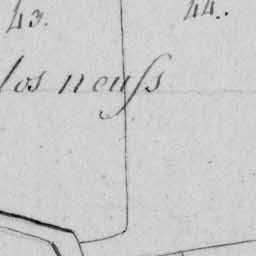 43.
44.
los neuſs